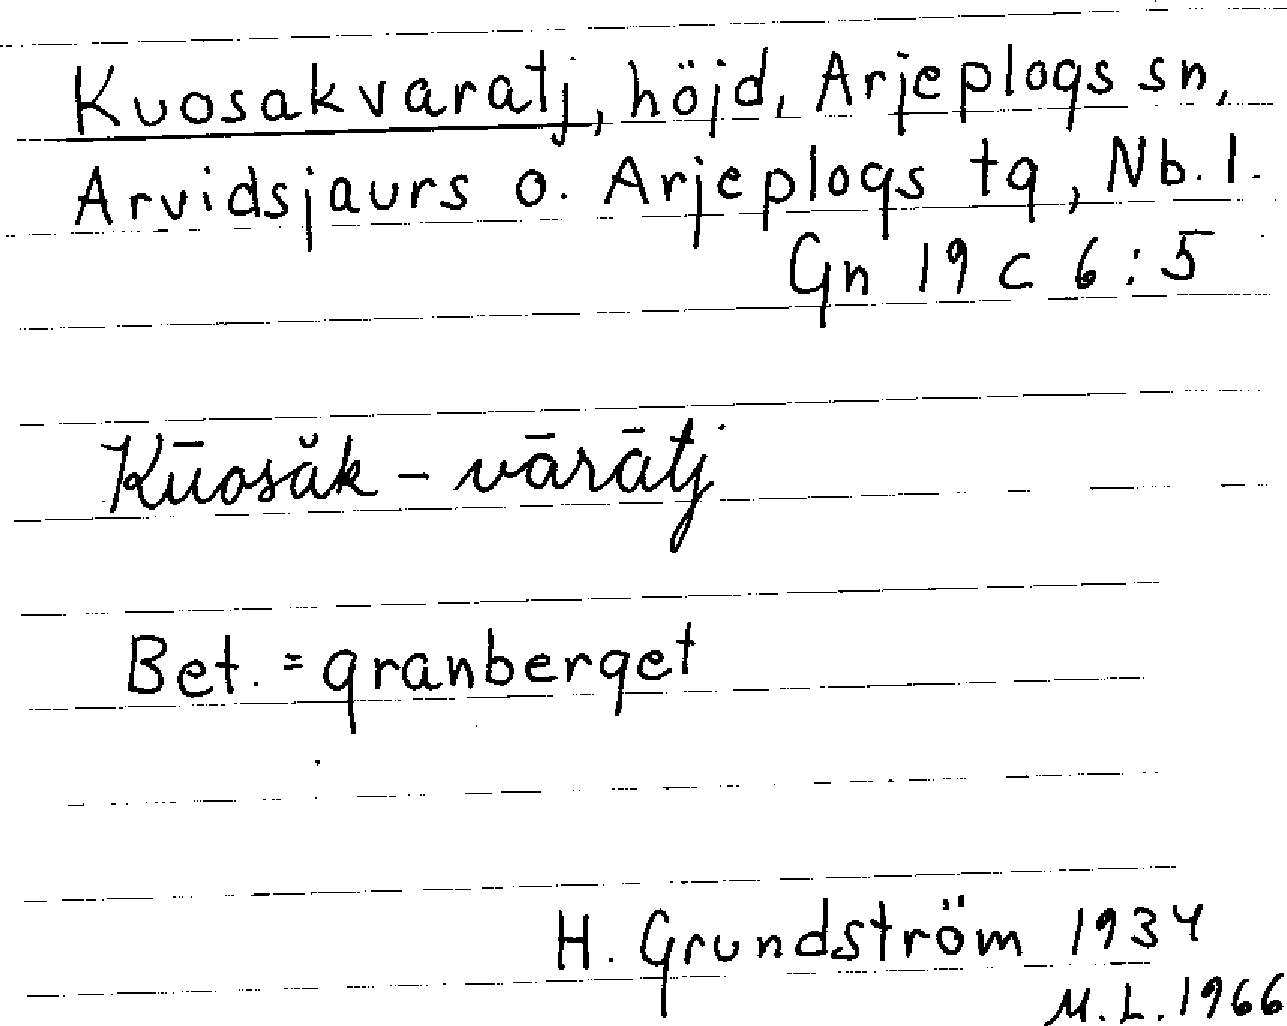 Kuosakvaratj, höjd, Arjeplogs sn,
Arvidsjaurs o. Arjeplogs tg, Nb. l.
Gn 19 C 6:5
Kūosăk - vārātj
Bet. = granberget
H. Grundström 1934
M.L. 1966